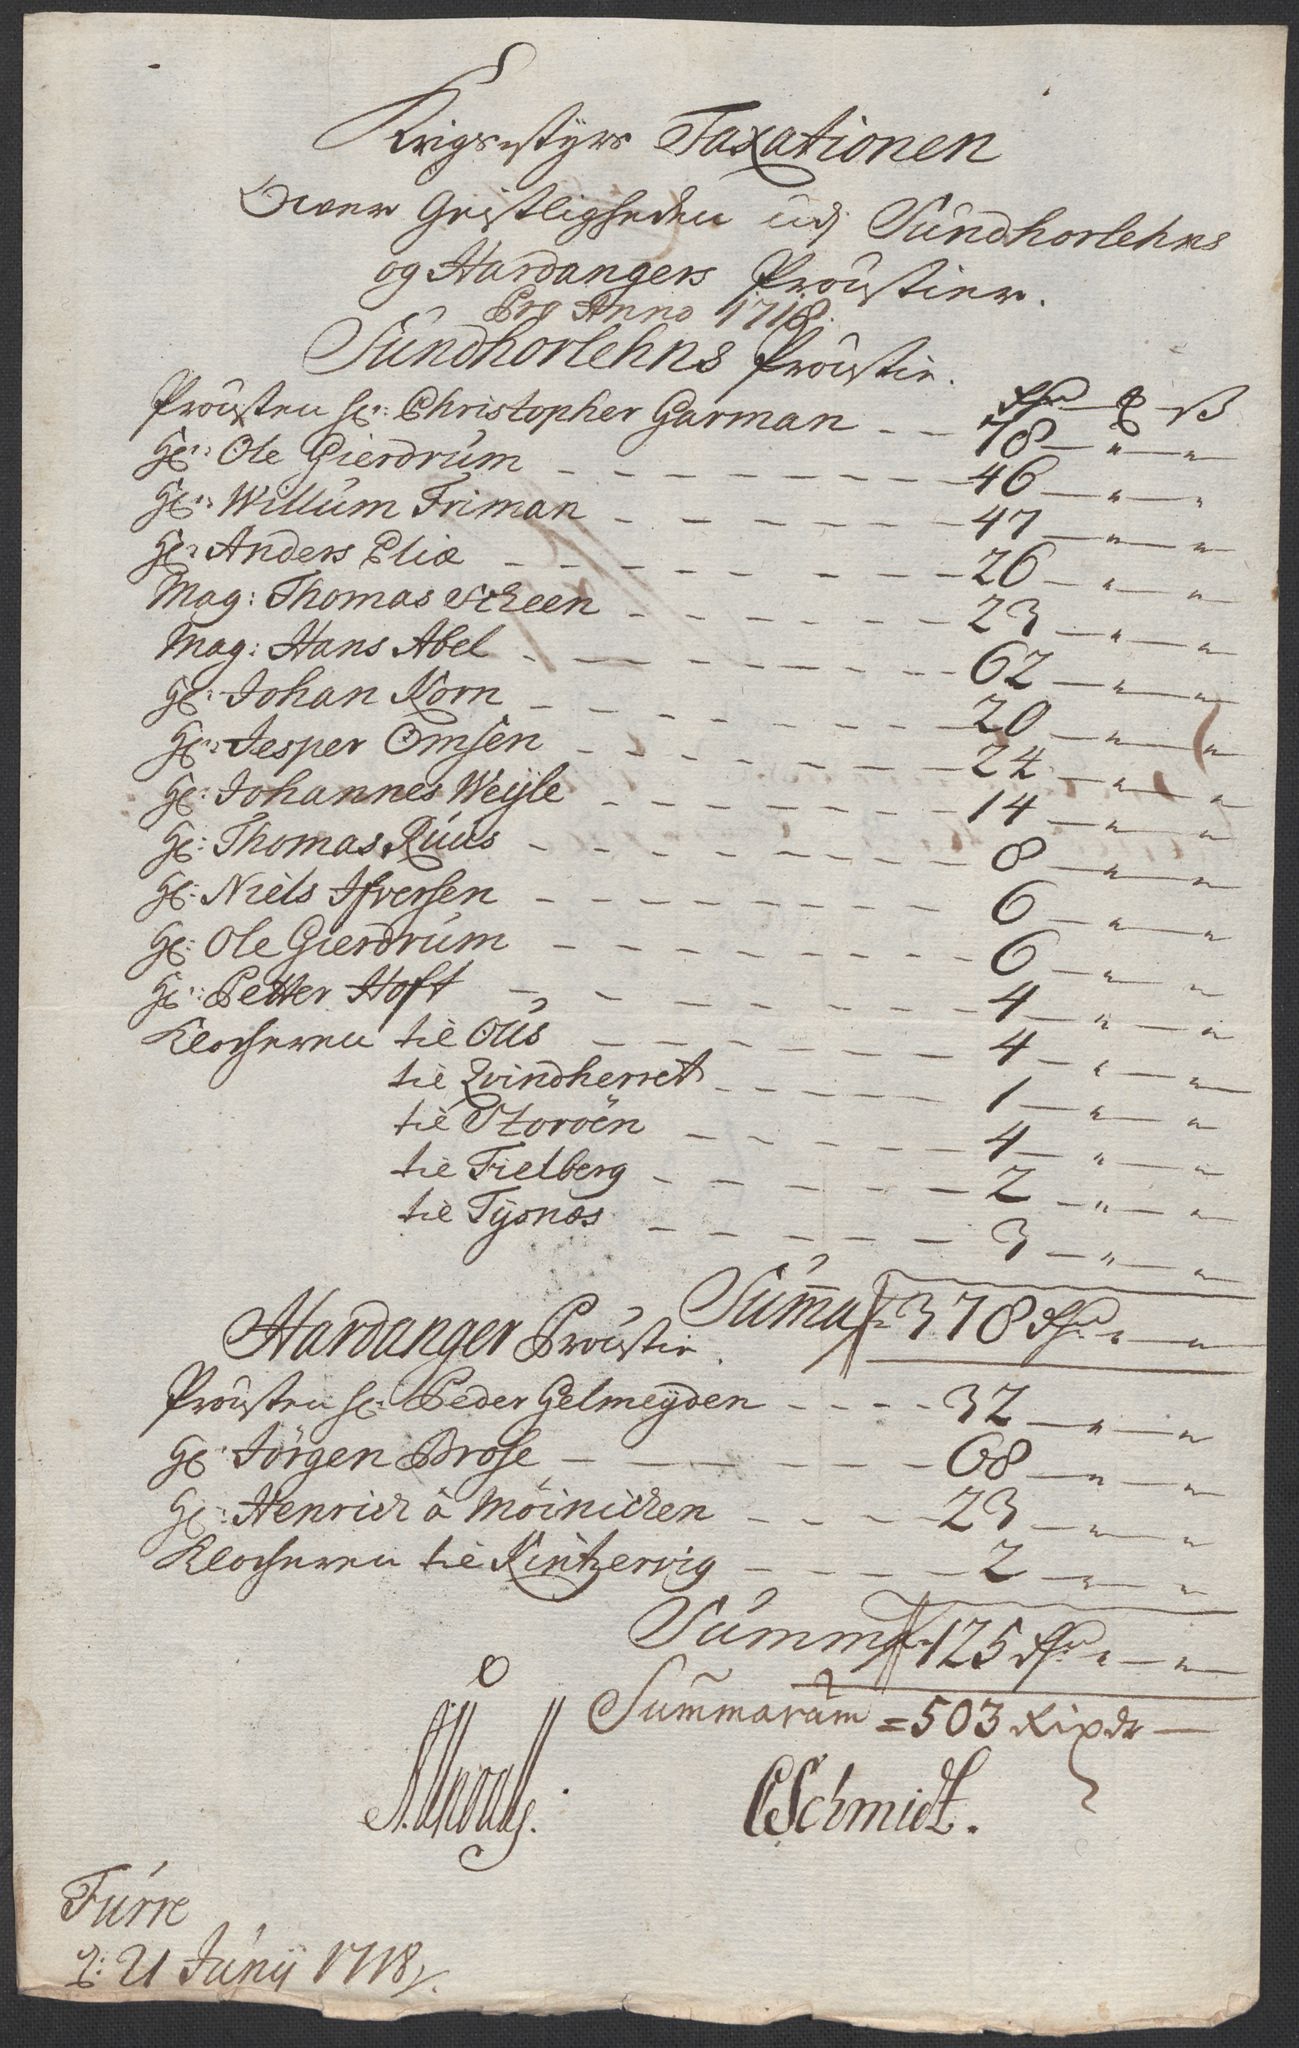 Krigsstyrs Taxationen
Over Geistligheden udj Sundhorlehns
og Hardangers Proustier.
Pro Anno 1718.
Sundhorlehns Proustie.
Rdr ß
Prousten Hr: Christopher Garman — 78 — " — "
Hr: Ole Gierdrum — 46 — " — "
Hr: Willum Friman — 47 — " — "
Hr: Anders Eliæ — 26 — " — "
Mag: Thomas Scheen — 23 — " — "
Mag: Hans Abel — 62 — " — "
Hr: Johan Korn — 20 — " — "
Hr: Jesper Omsen — 24 — " — "
Hr: Johannes Weyle — 14 — " — "
Hr: Thomas Ruus — 8 — " — "
Hr: Niels Ifversen — 6 — " — "
Hr: Ole Gierdrum — 6 — " — "
Hr: Petter Hoft — 4 — " — "
Klocheren til Ous — 4 — " — "
til Qvindherret — 1 — " — "
til Storöen — 4 — " — "
til Fielberg — 2 — " — "
til Tysnæs — 3 — " — "
Summa 378 Rdr " — "
Hardanger Proustie.
Prousten Hr: Peder Gelmeyden — 32 — " — "
Hr: Jörgen Brose — 68 — " — "
Hr: Henrich à Möinichen — 23 — " — "
Klocheren til Kintzervig — 2 — " — "
Summa 125 Rdr " — "
Summarum = 503 Rixdr —
CSchmidt.
Furre
d: 21 Junij 1718